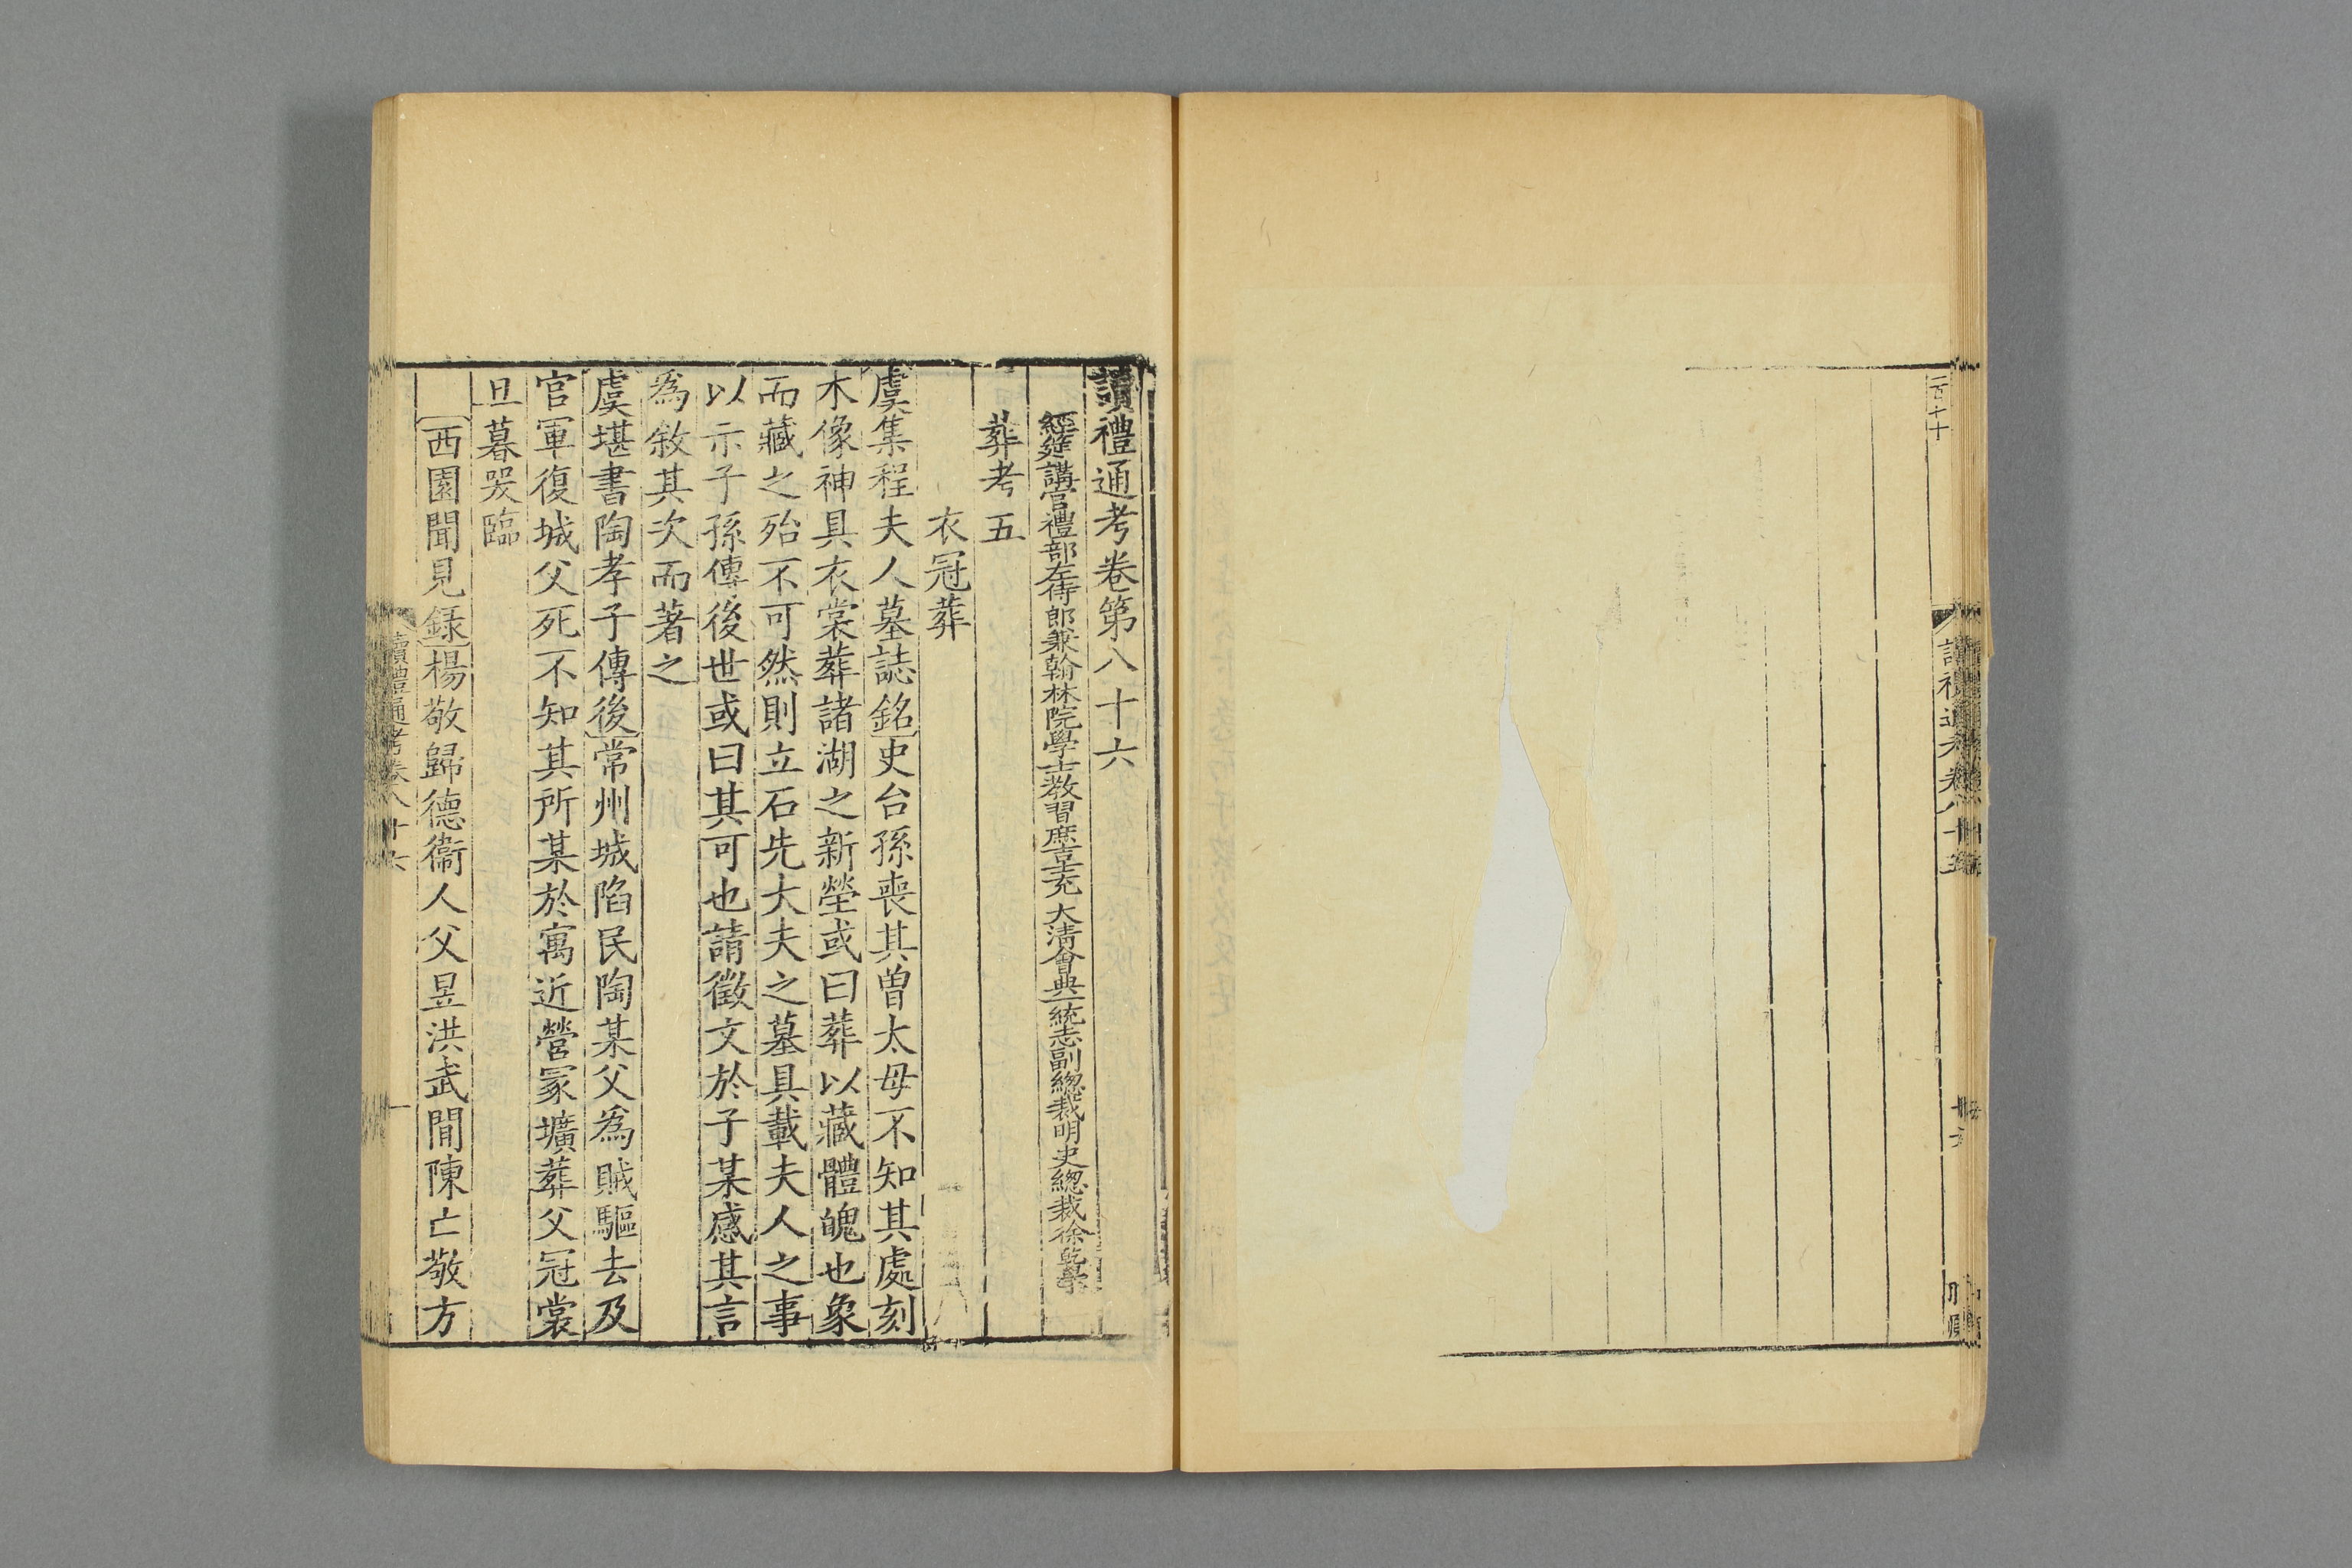 讀禮通考卷第八十六
經筵講官禮部左侍郎兼翰林院學士教習庶吉士充 大清會典一統志副總裁明史總裁徐乾學
葬考五
衣冠葬
虞集程夫人墓誌銘史台孫喪其曾太母不知其處刻
木像神具衣裳葬諸湖之新塋或曰葬以藏體魄也象
而藏之殆不可然則立石先大夫之墓具載夫人之事
以示子孫傳後世或曰其可也請徵文於子某感其言
為敘其次而著之
虞堪書陶孝子傳後常州城陷民陶某父為賊驅去及
官軍復城父死不知其所某於寓近營冢壙葬父冠裳
旦暮哭臨
西園聞見錄楊敬歸德衞人父昱洪武間陳亡敬方
讀禮通考卷八十六
一